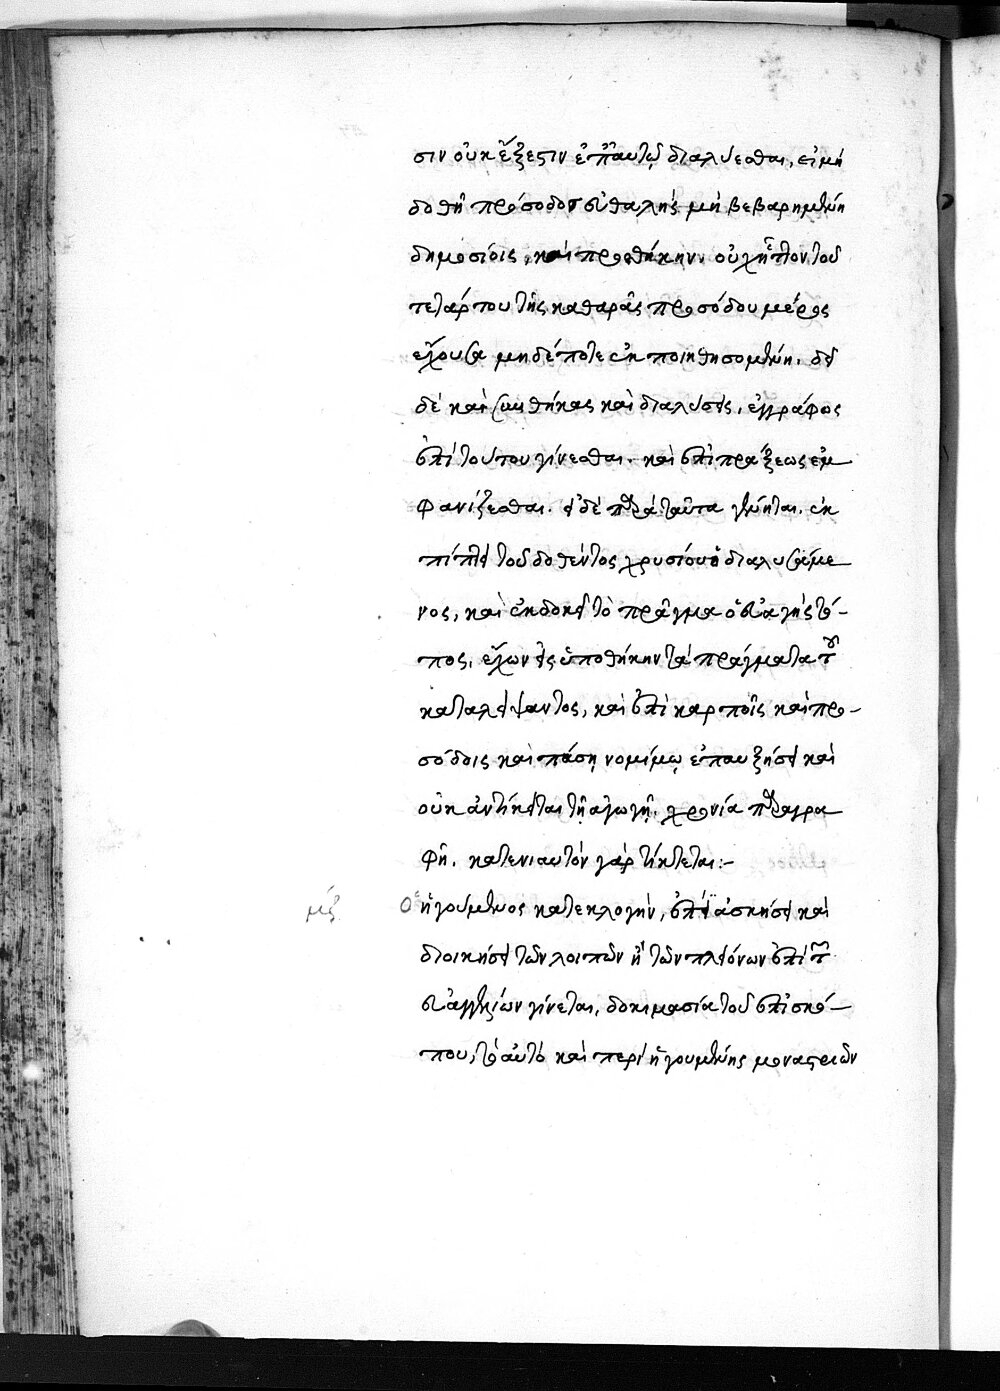 σιν οὐκ ἔξεστιν ἐπ' αὐτῷ διαλύεσθαι, εἰ μὴ
δοθῇ πρόσοδος εὐθαλὴς μὴ βεβαρημένη
δημοσίοις, καὶ προσθήκην οὐχ ἧττον τοῦ
τετάρτου τῆς καθαρᾶς προσόδου μέρος
ἔχουσα μηδέποτε ἐκποιηθησομένη. δεῖ
δὲ καὶ συνθήκας καὶ διαλύσεις, ἐγγράφος
ἐπὶ τούτου γίνεσθαι. καὶ ἐπὶ πράξεως ἐμ
φανίζεσθαι. εἰ δὲ παρὰ ταῦτα γένηται, ἐκ
πίπτει τοῦ δοθέντος χρυσίου ὁ διαλυσάμε
νος, καὶ ἐκδικεῖ τὸ πρᾶγμα ὁ εὐαγὴς τό-
πος, ἔχων εἰς ὑποθήκην τὰ πράγματα τοῦ
καταλείψαντος, καὶ ἐπὶ καρποῖς καὶ προ-
σόδοις καὶ πάσῃ νομίμῳ ἐπαυξήσει καὶ
οὐκ ἀντίκειται τῇ ἀγωγῇ, χρονία παραγρα
φή. κατ' ἐνιαυτὸν γὰρ τίκτεται:-
μζ Ὁ ἡγούμενος κατ' ἐκλογὴν, ἐπὶ ἀσκήσει καὶ
διοικήσει τῶν λοιπῶν ἢ τῶν πλειόνων ἐπὶ τῶν
εὐαγγελίων γίνεται, δοκιμασία τοῦ ἐπισκό-
που, τὸ αὐτὸ καὶ περὶ ἡγουμένης μοναστριῶν